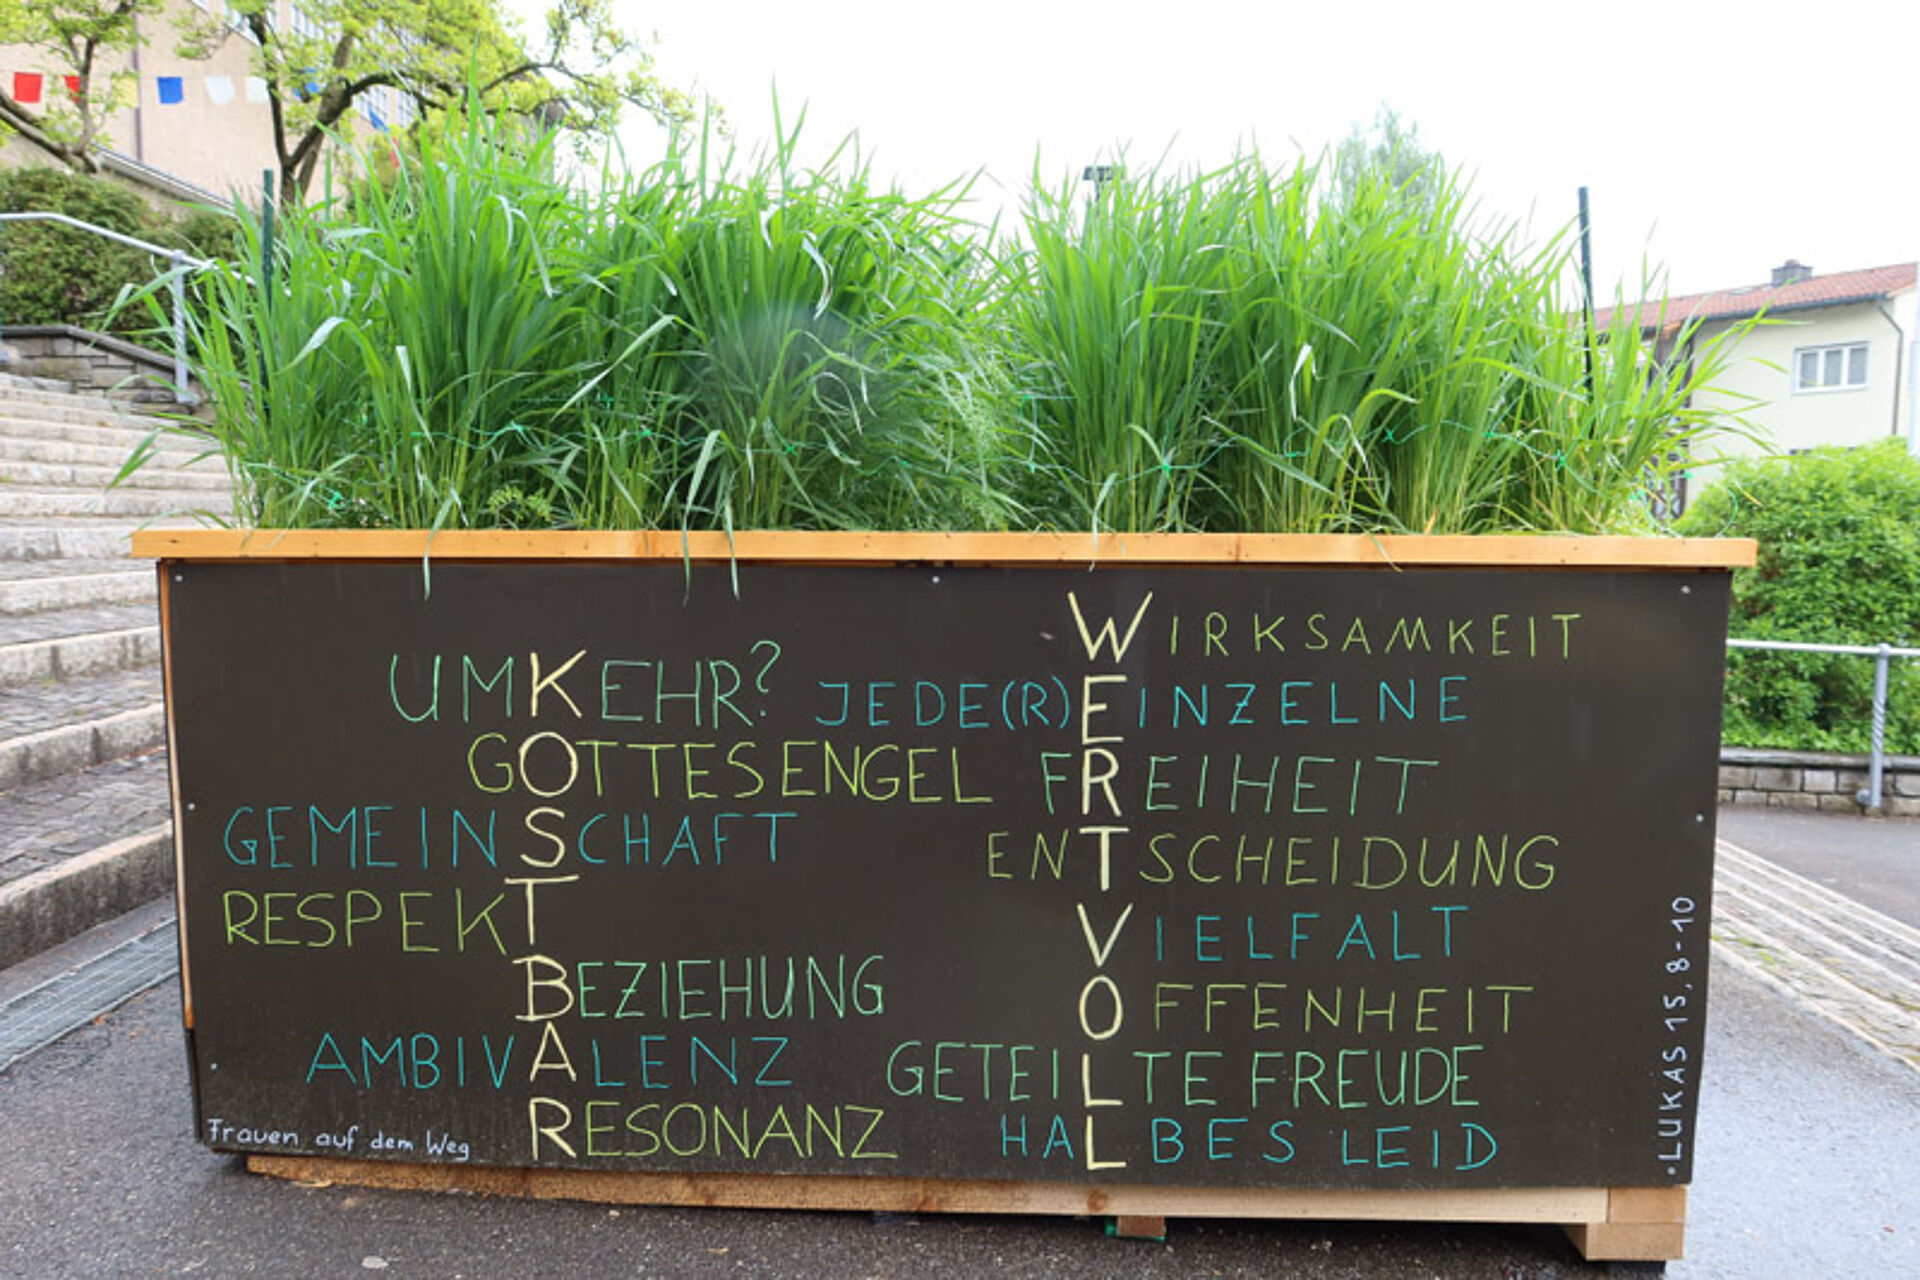 WIRKSAMKEIT
UMKEHR? JEDE(R) EINZELNE
GOTTESENGEL FREIHEIT
GEMEINSCHAFT ENTSCHEIDUNG
RESPEKT VIELFALT
BEZIEHUNG OFFENHEIT
AMBIVALENZ GETEILTE FREUDE
RESONANZ HALBES LEID
Frauen auf dem Weg
LUKAS 15, 8-10